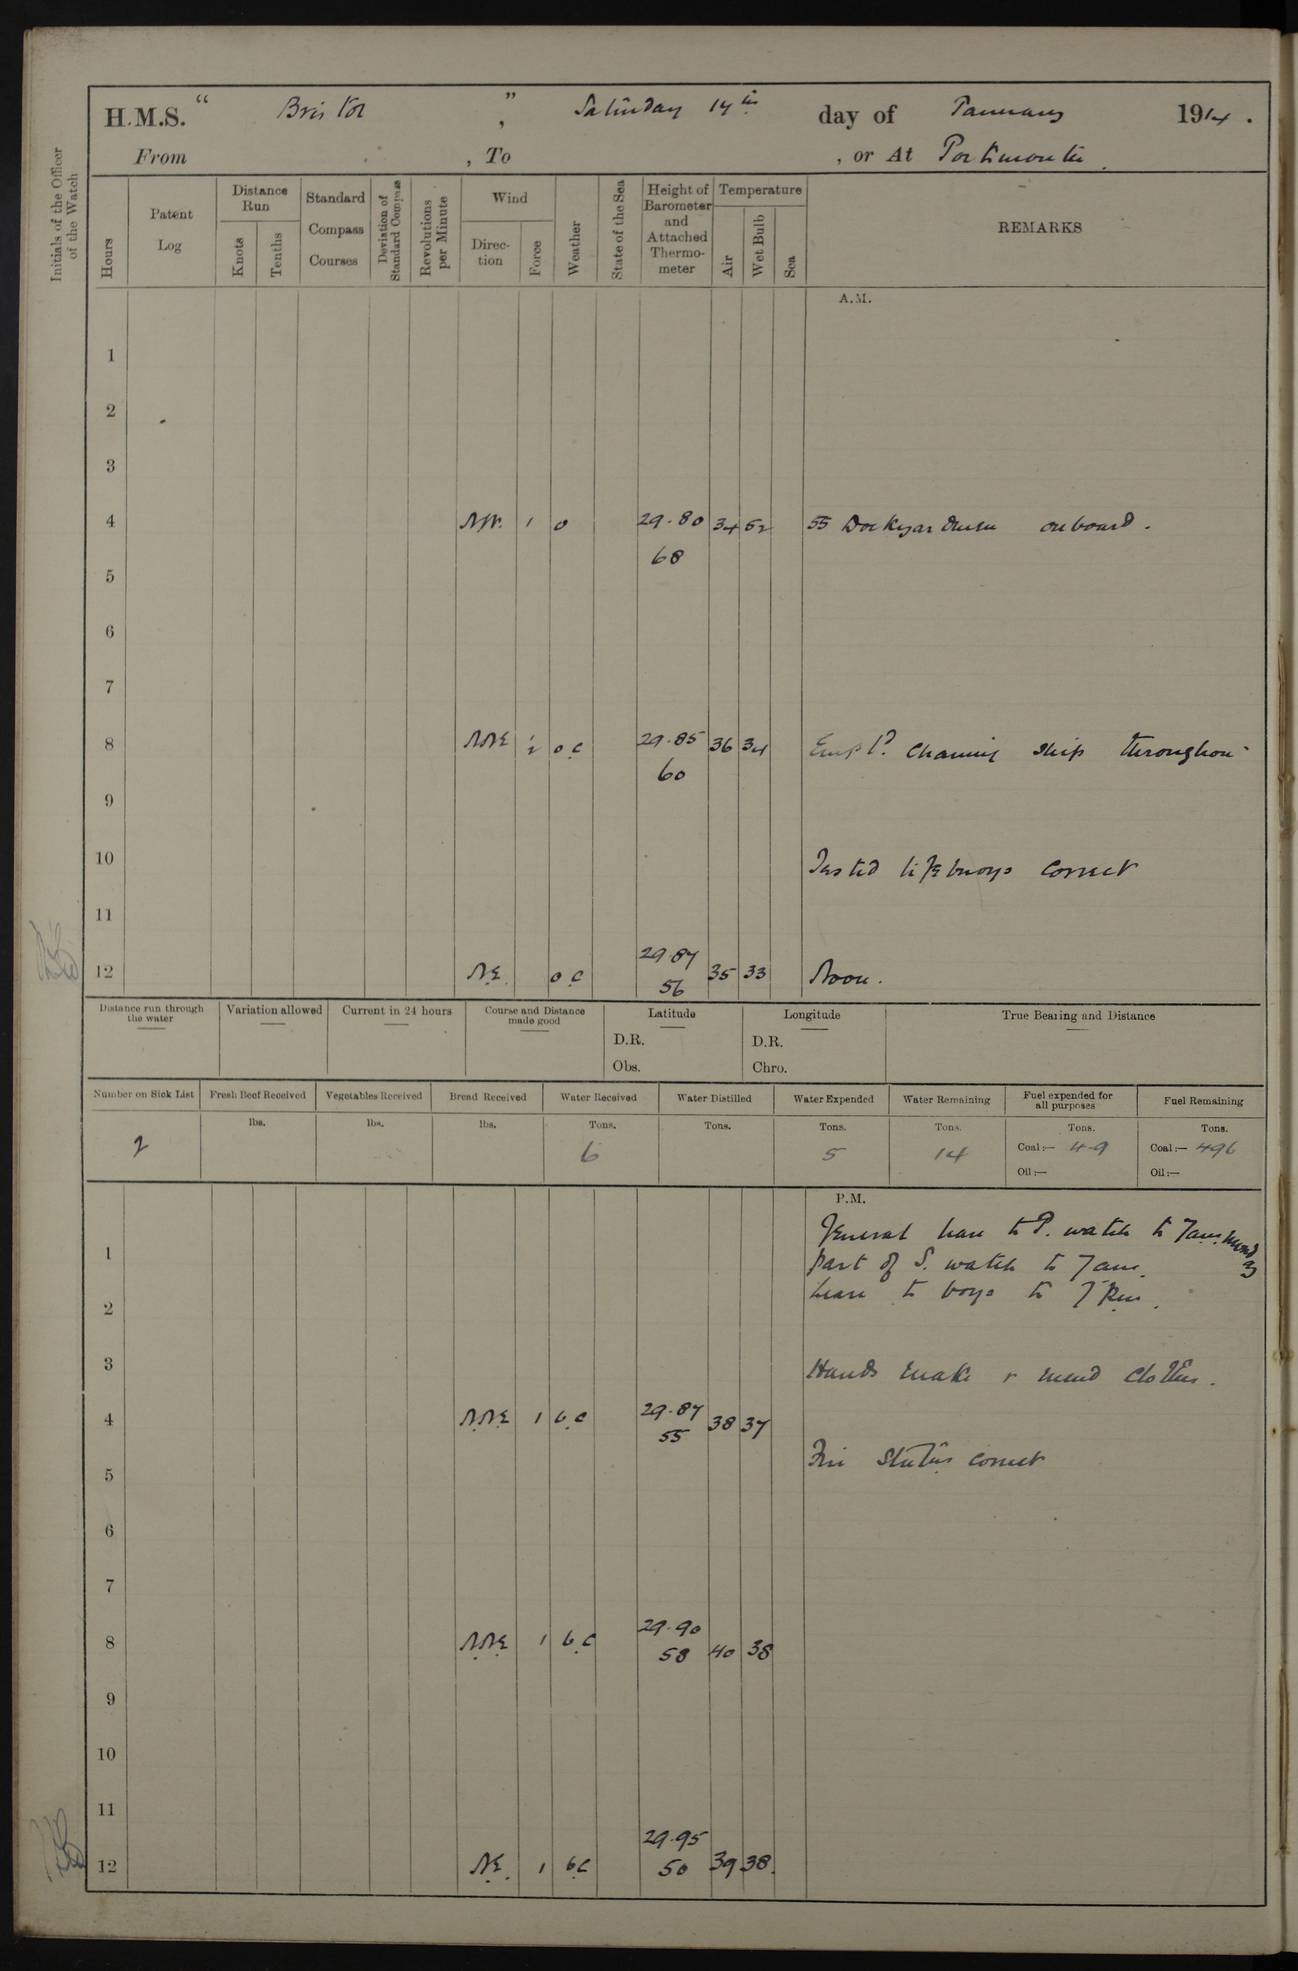 H.M.S. “ Bristol ” , Saturday 17th day of January 1914.
From , To , or At Portsmouth.
Initials of the Officer of the Watch
Hours
Patent Log
Distance Run
Knots
Tenths
Standard Compass Courses
Deviation of Standard Compass
Revolutions per Minute
Wind
Direction
Force
Weather
State of the Sea
Height of Barometer and Attached Thermometer
Temperature
Air
Wet Bulb
Sea
REMARKS
A.M.
1
2
3
4 NW. 1 o 29.80 34 52 55 Dockyard men onboard.
68
5
6
7
8 NNE 1-2 o.c 29.85 36 34 Empld. cleaning ship throughout
60
9
10 Tested lifebuoys correct
11
12 N.E. o.c 29.87 35 33 Noon.
56
Distance run through the water
Variation allowed
Current in 24 hours
Course and Distance made good
Latitude
D.R.
Obs.
Longitude
D.R.
Chro.
True Bearing and Distance
Number on Sick List
Fresh Beef Received
Vegetables Received
Bread Received
Water Received
Water Distilled
Water Expended
Water Remaining
Fuel expended for all purposes
Fuel Remaining
2 lbs. lbs. lbs. Tons. 6 Tons. Tons. 5 Tons. 14 Tons. Coal:— 4.9 Oil:— Tons. Coal:— 496 Oil:—
P.M.
General leave to P. watch to 7am. Monday
1 part of S. watch to 7am.
2 Leave to boys to 7 pm.
3 Hands make & mend clothes.
4 N.N.E 1 b.c 29.87 38 37
55
Fire Stations correct
5
6
7
8 N.N.E 1 b.c 29.90 40 38
58
9
10
11
12 N.E. 1 b.c 29.95 39 38.
50